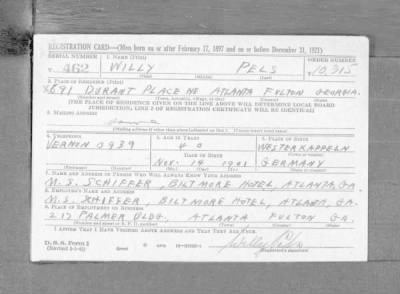 REGISTRATION CARD—(Men born on or after February 17, 1897 and on or before December 31, 1921)
SERIAL NUMBER 1. NAME (Print) ORDER NUMBER
V 462 WILLY PELS V 10,315
(First) (Middle) (Last)
2. PLACE OF RESIDENCE (Print)
891 DURANT PLACE NE ATLANTA FULTON GEORGIA.
(Number and street) (Town, township, village, or city) (County) (State)
[THE PLACE OF RESIDENCE GIVEN ON THE LINE ABOVE WILL DETERMINE LOCAL BOARD
JURISDICTION; LINE 2 OF REGISTRATION CERTIFICATE WILL BE IDENTICAL]
3. MAILING ADDRESS
Same
[Mailing address if other than place indicated on line 2. If same insert word same]
4. TELEPHONE 5. AGE IN YEARS 6. PLACE OF BIRTH
VERNON 0939 40 WESTERKAPPELN
DATE OF BIRTH
NOV. 14 1901 GERMANY
(Exchange) (Number) (Mo.) (Day) (Yr.) (State or country)
7. NAME AND ADDRESS OF PERSON WHO WILL ALWAYS KNOW YOUR ADDRESS
M. S. SCHIFFER, BILTMORE HOTEL, ATLANTA, GA.
8. EMPLOYER'S NAME AND ADDRESS
M. S. SCHIFFER, BILTMORE HOTEL, ATLANTA, GA.
9. PLACE OF EMPLOYMENT OR BUSINESS
217 PALMER BLDG. ATLANTA FULTON GA.
(Number and street or R. F. D. number) (Town) (County) (State)
I AFFIRM THAT I HAVE VERIFIED ABOVE ANSWERS AND THAT THEY ARE TRUE.
D. S. S. Form 1
Willy Pels
(Registrant's signature)